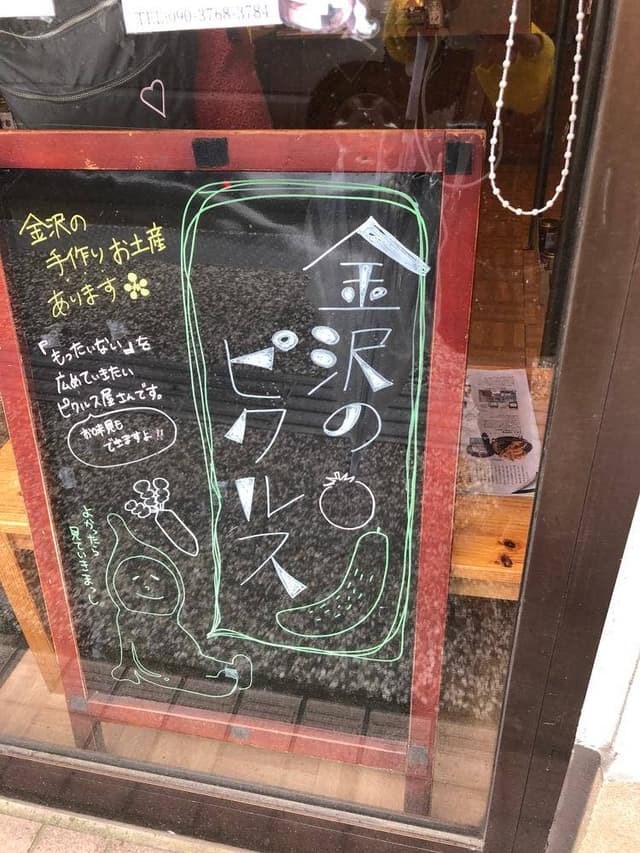 TEL:090-3768-3784
金沢の
ピクルス
金沢の
手作りお土産
あります
『もったいない』を
広めていきたい
ピクルス屋さんです。
お味見も
できますよ!!
よかったら
見ていきまっし